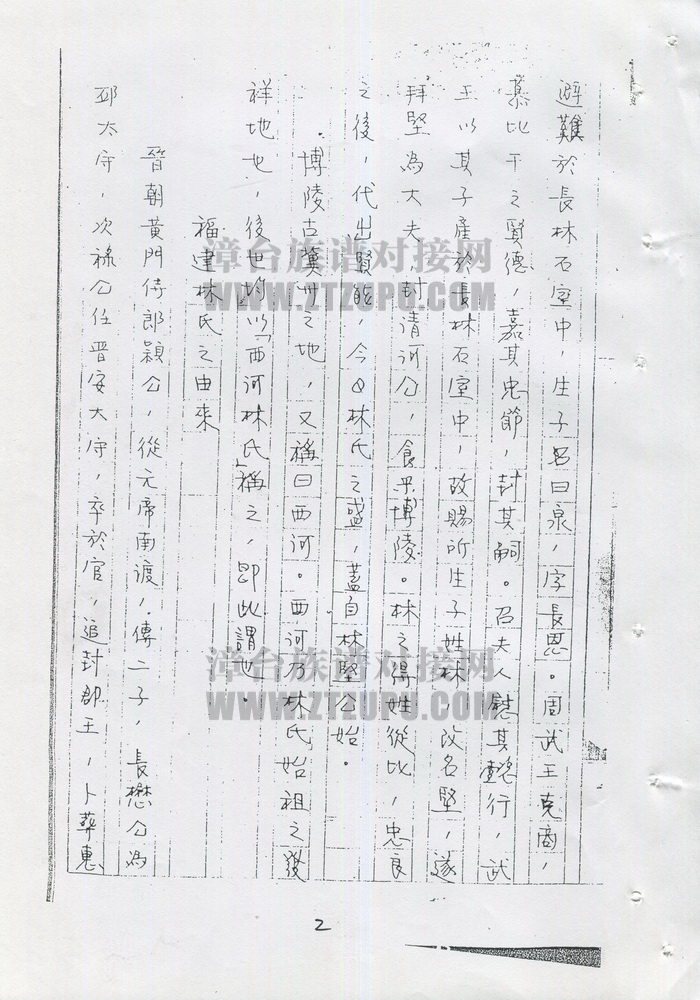 避難於長林石室中，生子名曰泉，字長思。周武王克商，
慕比干之賢德，嘉其忠節，封其嗣。召夫人慰其懿行，武
王以其子產於長林石室中，故賜所生子姓林，改名堅，遂
拜堅為大夫，封清河公，食采博陵。林之得姓從比，忠良
之後，代出賢能，今日林氏之盛，蓋自林堅公始。
博陵古冀州之地，又稱曰西河。西河乃林氏始祖之發
祥地也，後世均以「西河林氏」稱之，即此謂也。
福建林氏之由來
晉朝黃門侍郎穎公，從元帝南渡，傳二子，長懋公為
邳太守，次祿公任晋安太守，卒於官，追封郡王，卜葬惠
2
漳台族谱对接网
WWW.ZTZUPU.COM
漳台族谱对接网
WWW.ZTZUPU.COM